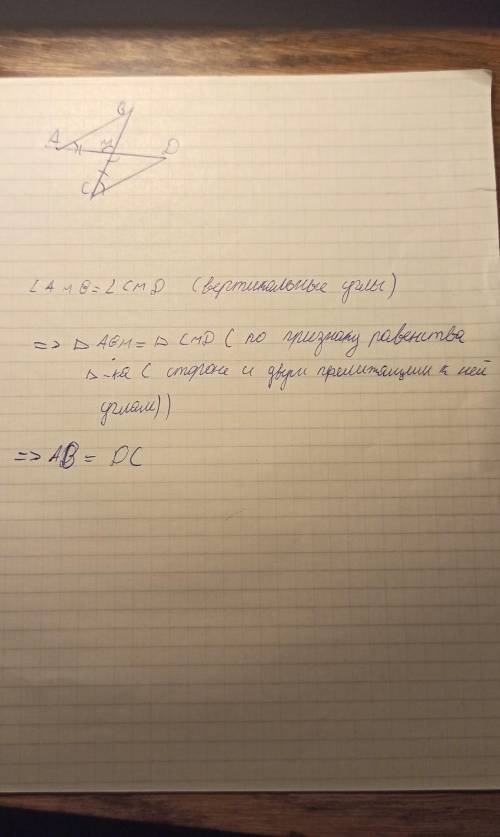 B
A
M
D
C
∠AMB=∠CMD (вертикальные углы)
=> ▷ ABM= ▷ CMD ( по признаку равенства
▷-ка ( стороне и двум прележащим к ней
углам))
=> AB = DC